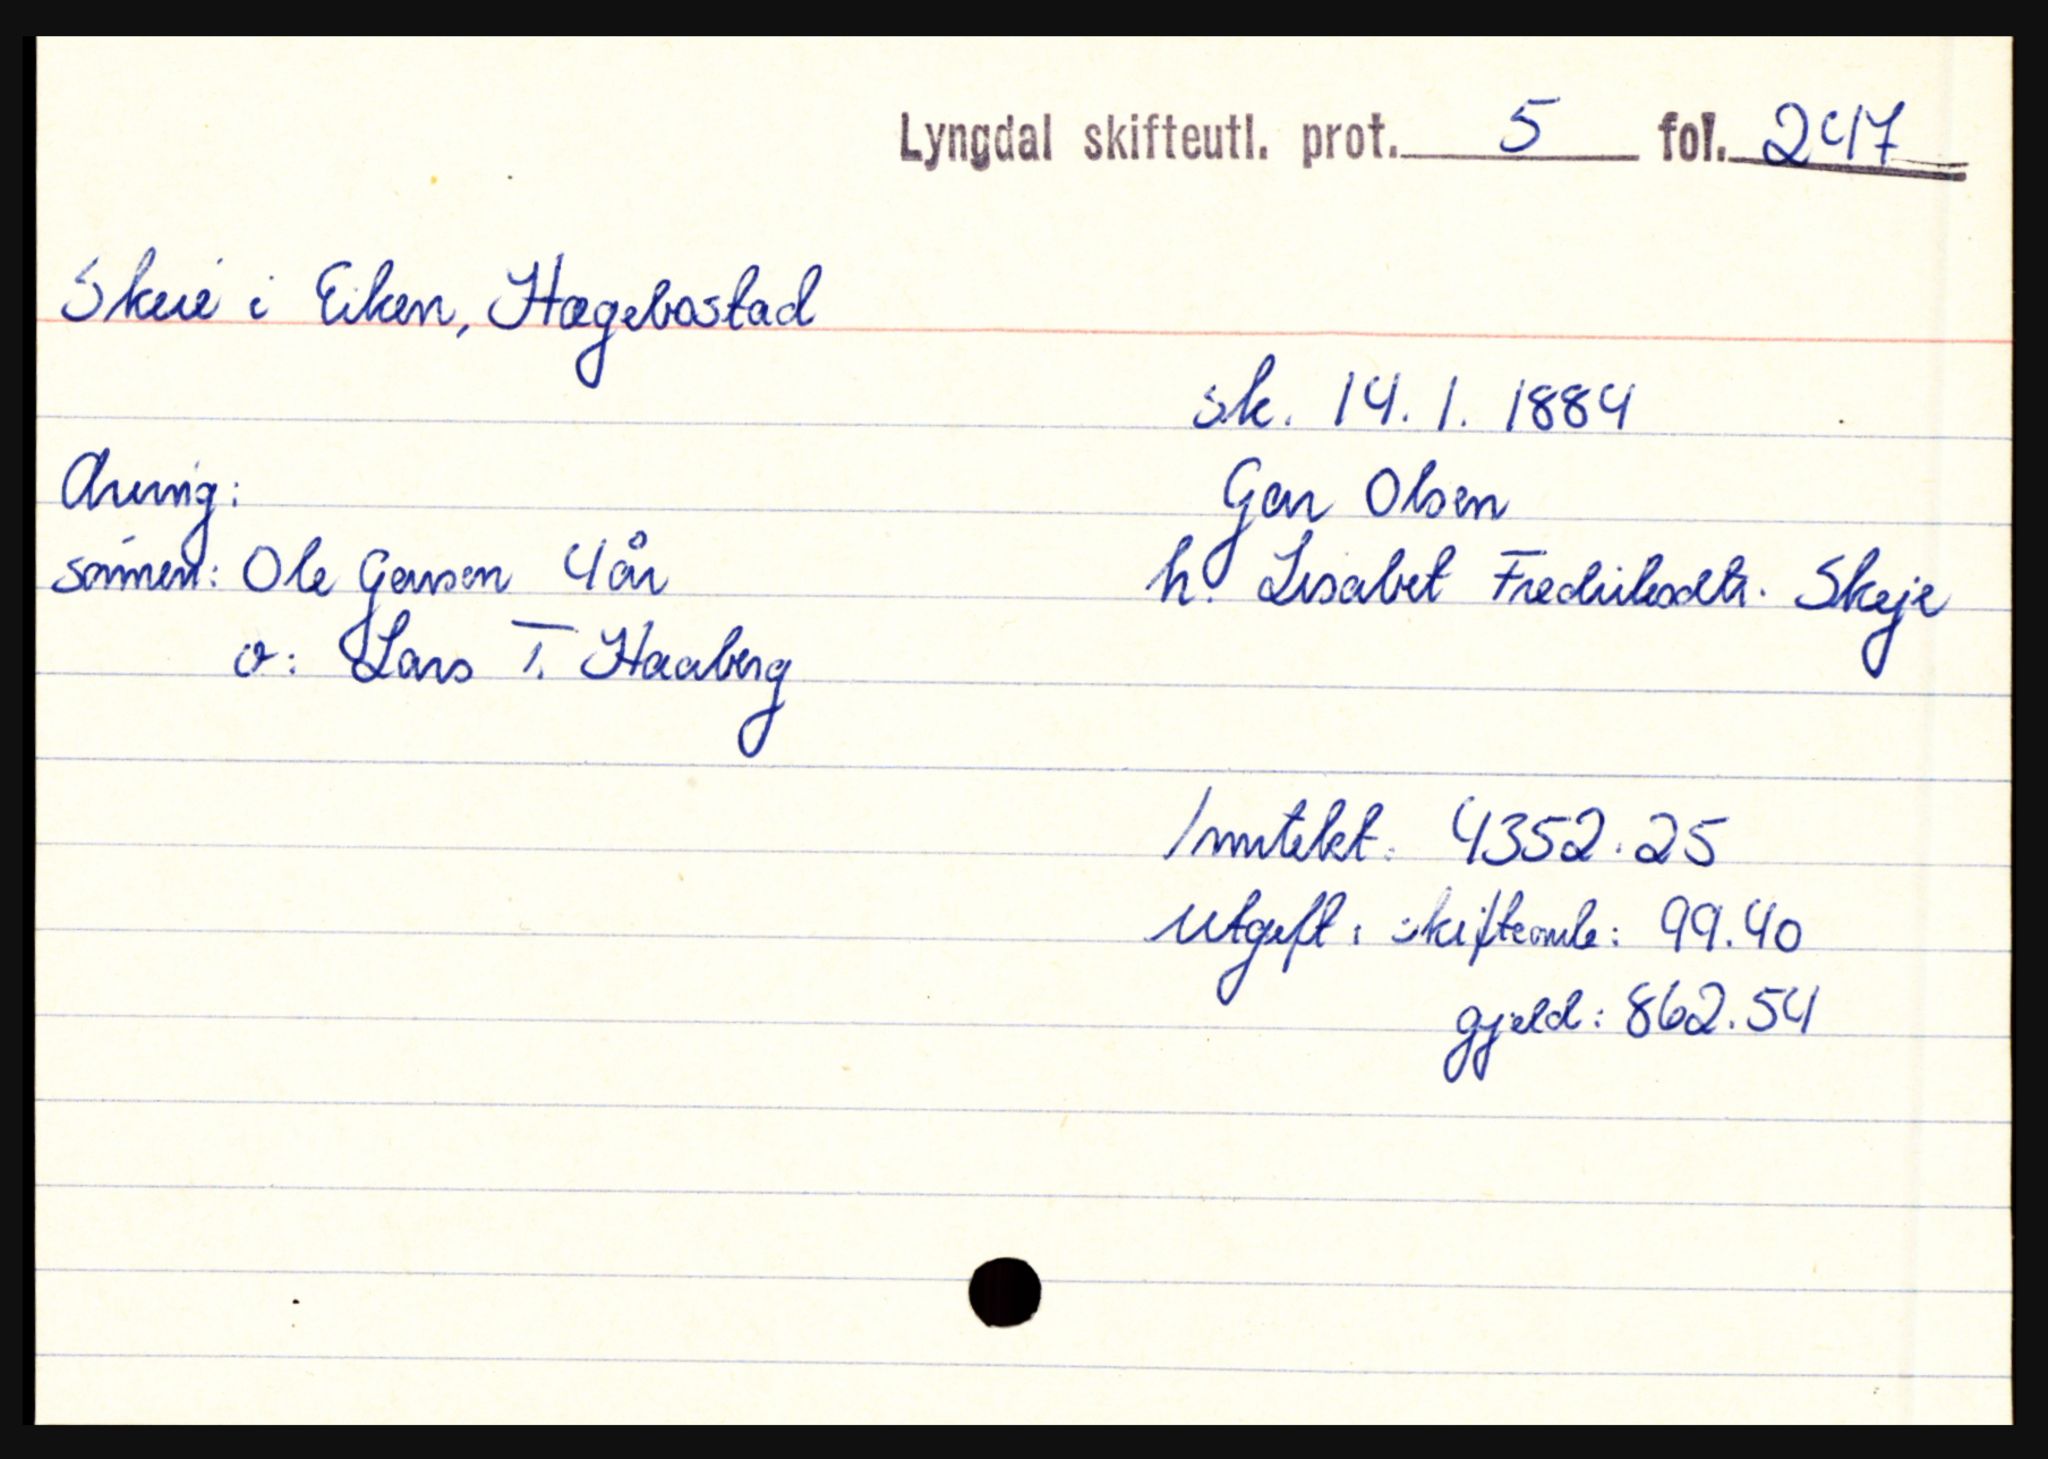 Lyngdal skifteutl. prot. 5 fol. 247
Skeie i Eiken, Hægebostad
sk. 14. 1. 1884
Arving:
Gar Olsen
sønnen: Ole Garsen 4 år
h. Lisabet Fredriksdtr. Skeje
v: Lars T. Haaberg
Inntekt: 4352.25
Utgift: skifteomk: 99.40
gjeld: 862.54